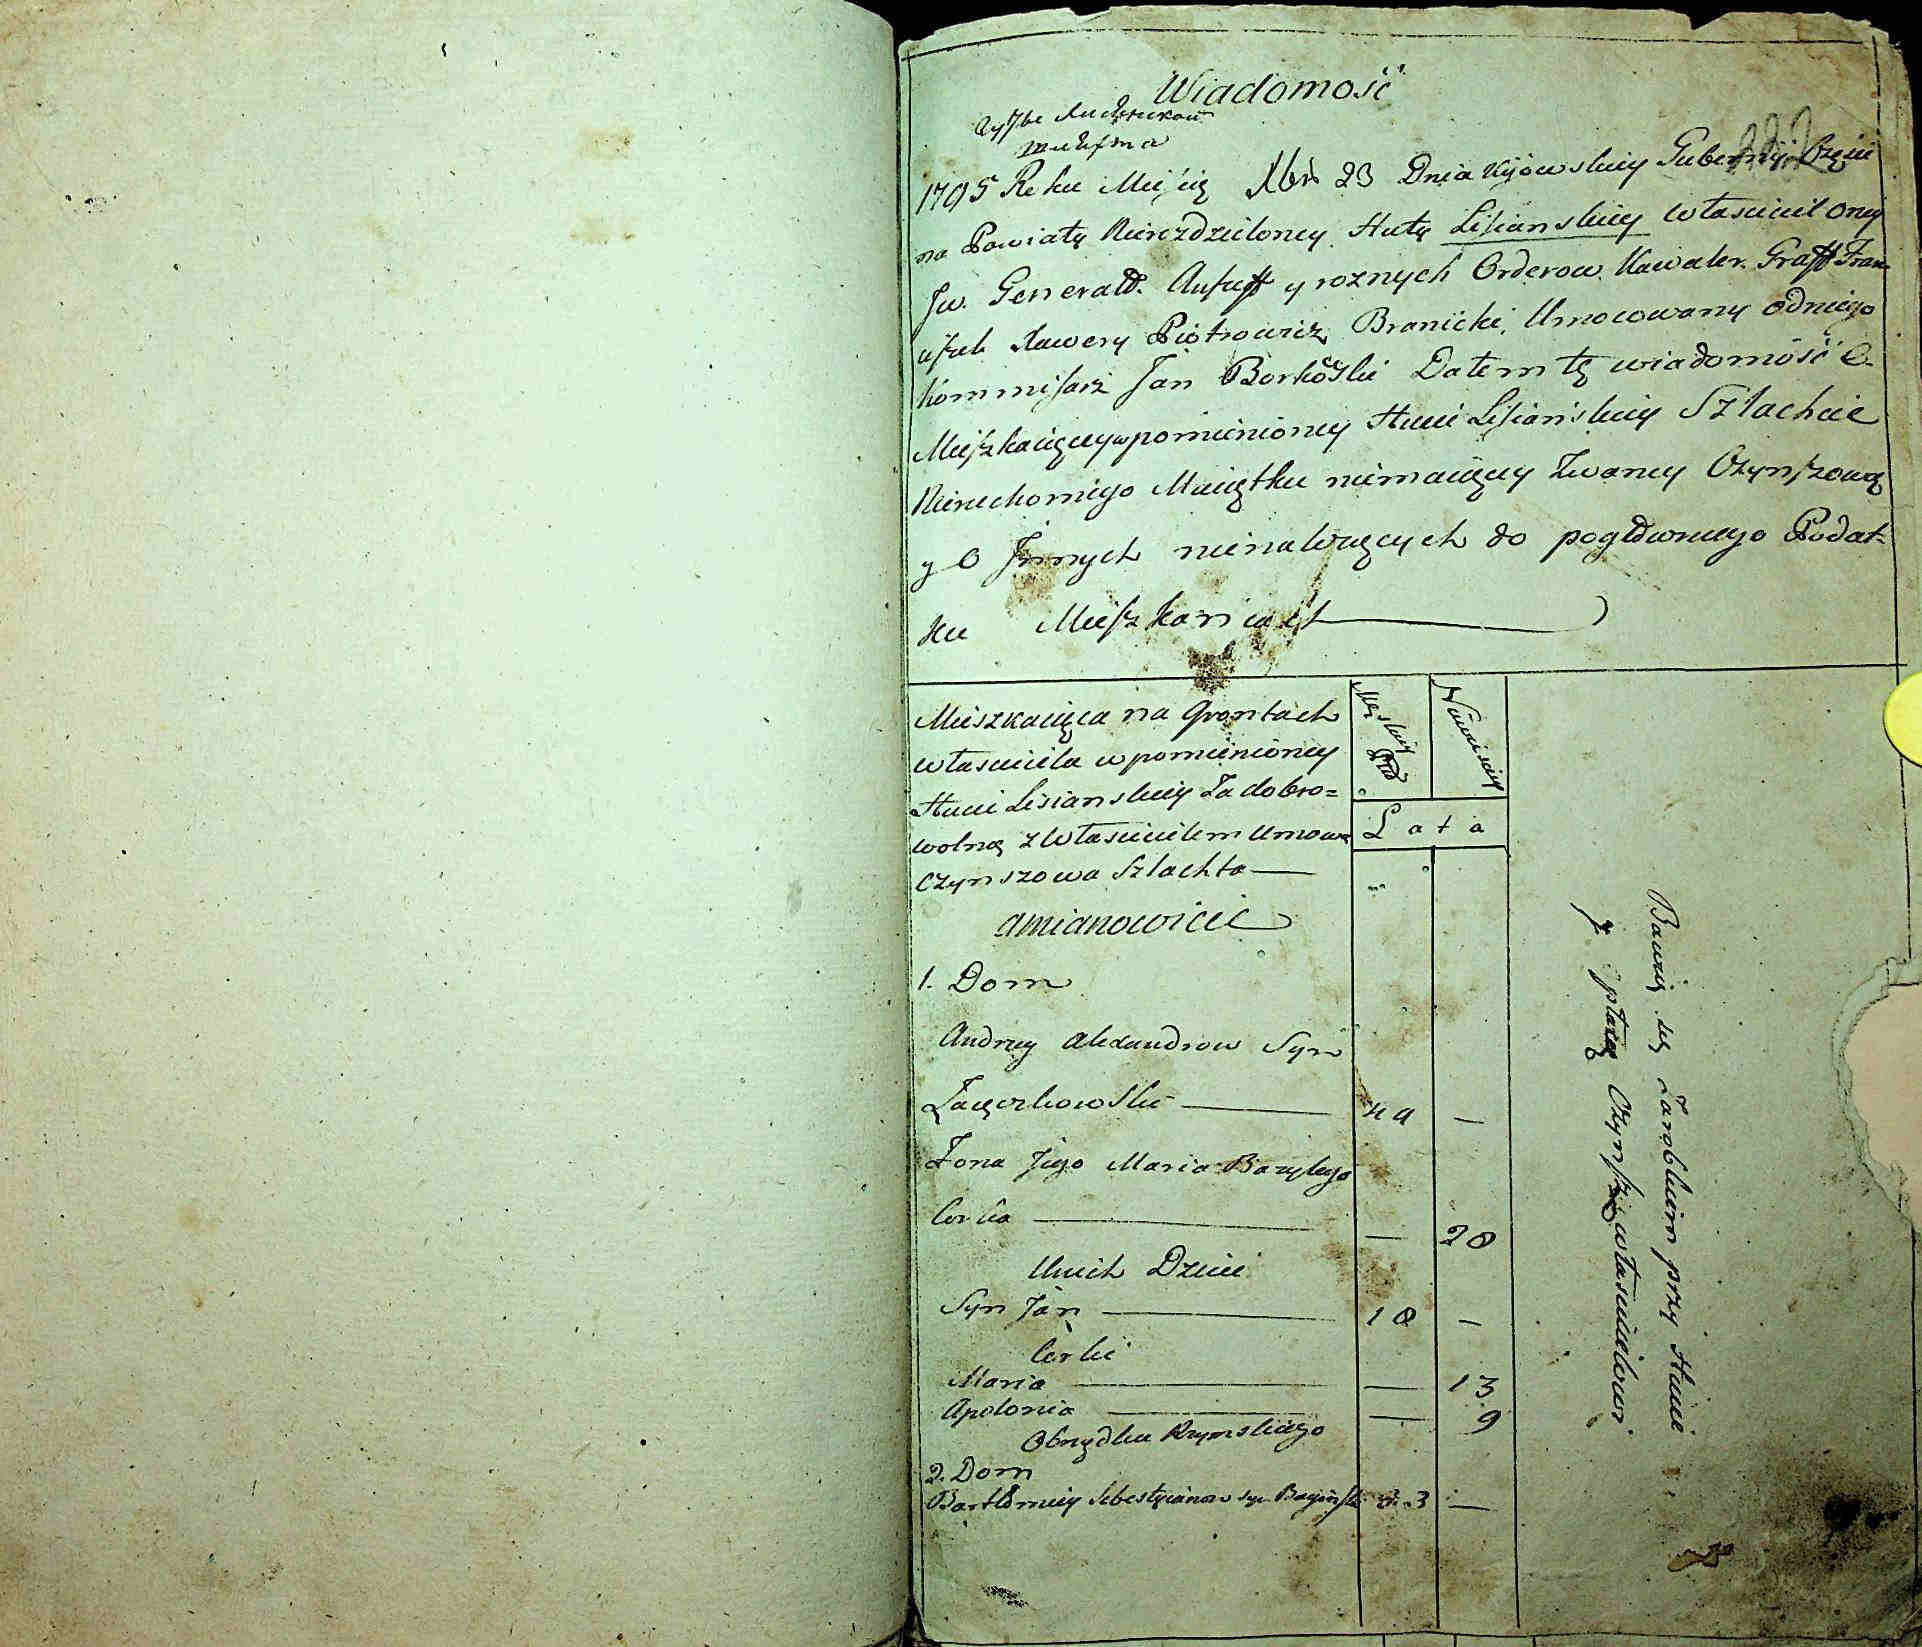 Wiadomość
1795 Roku Miesią Xbris 23 Dnia Kijowskiey Gubernij Części
na Powiaty Nierozdzieloney Hutę Lisianskiey właściciel oney
Jw. Generał. Anszeff y roznych Orderow Kawaler. Graff Fran-
ciszek Xawery Piotrowicz Branicki, Umocowany odniego
Kommisarz Jan Borkoski Dałem tę wiadomość O
Mieszkaiącey wpomienioney Hucie Lisianskiey Szlachcie
Nieruchomego Maiątku niemaiącey Zwaney Czynszową
y O Jnnych nienależących do pogłównego Podat-
ku Mieszkańcach
Mieszkaiąca na Grontach
właściciela wpomienioney
Hucie Lisianskiey Za dobro=
wolną z Właścicielem Umową
Czynszowa Szlachta
Męskiey Płci
Niewieściey
Lata
amianowicie
1. Dom
Andrzey Alexandrow Syn
Zaączkowski 49 —
Żona Jego Maria Bazylego
Corka — 28
Unich Dzieci
Syn Jan 18 —
Corki
Maria — 13
Apolonia — 9
Obrządku Rzymskiego
2. Dom
Bartłomiey Sebestyanow syn 33 —
Bawią się Zarobkiem przy Hucie
y płacą Czynsz właścicielowi